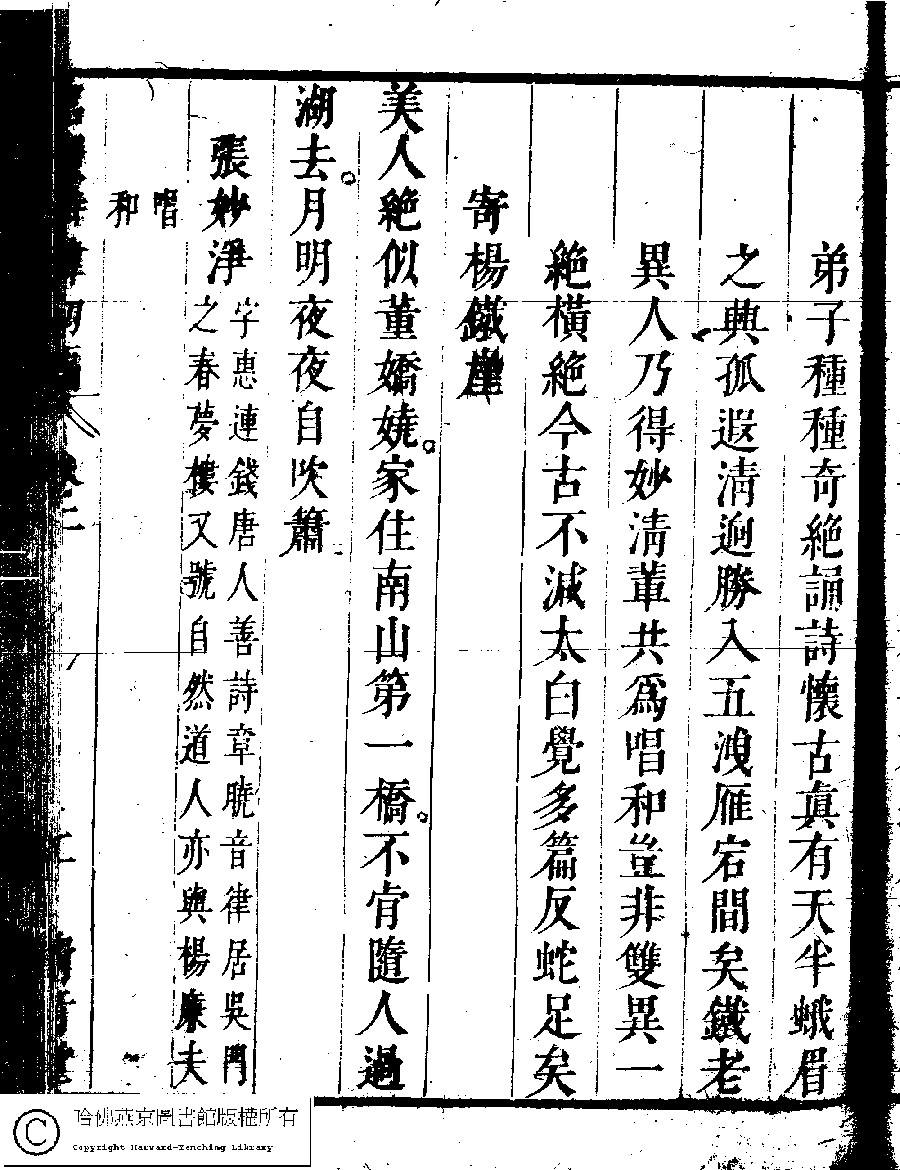 弟子種種奇絶誦詩懷古眞有天半蛾眉
之典孤遐淸逈勝入五溲雁宕間矣鐵老
異人乃得妙淸輩共爲唱和豈非雙異一
絶橫絶今古不減太白覺多篇反蛇足矣
寄楊鐵崖
美人絶似董嬌嬈。家住南山第一橋。不肯隨人過
湖去。月明夜夜自吹簫
張妙淨
字惠連錢唐人善詩章曉音律居吳門
之春夢樓又號自然道人亦與楊廉夫
唱
和
哈佛燕京圖書館版權所有
Copyright Harvard-Yenching Library